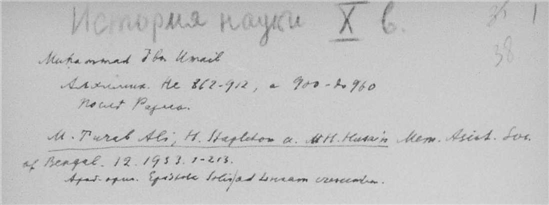 История науки X в.
1
38
Muhammad Ibn Umail
Алхимик. Не 862-912, а 900-до 960
после Разеса.
M. Turab Ali, H. Stapleton a. M. H. Husain Mem. Asiat. Soc.
of Bengal. 12. 1933. 1-213.
Араб. ориг. Epistola Solis ad Lunam crescentem.